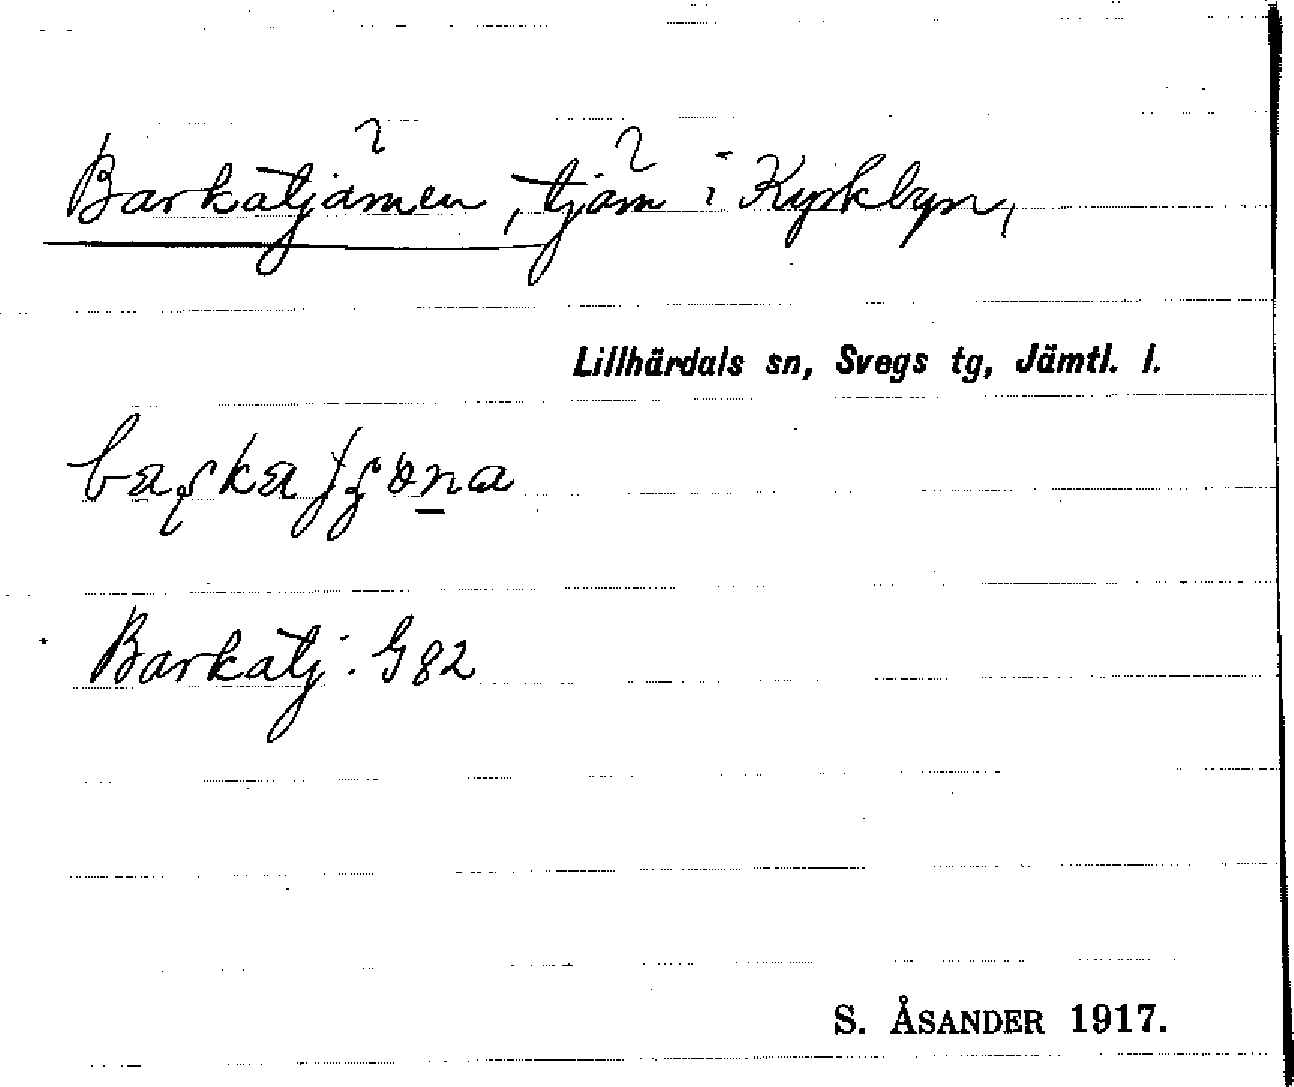 Barkåtjärnen, tjärn i Kyrkbyn,
Lillhärdals sn, Svegs tg, Jämtl. l.
Barkåtj. G82
S. ÅSANDER 1917.